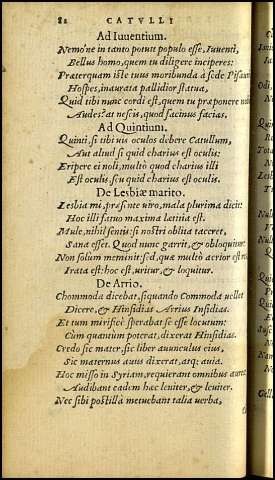 82 CATVLLI
Ad Iuuentium.
Nemo'ne in tanto potuit populo esse, Iuuenti,
Bellus homo, quem tu diligere inciperes:
Præterquam iste tuus moribunda à sede Pisauri
Hospes, inaurata pallidior statua,
Quid tibi nunc cordi est, quem tu præponere nobis
Audes? at nescis, quod facinus facias.
Ad Quintium.
Quinti, si tibi uis oculos debere Catullum,
Aut aliud si quid charius est oculis:
Eripere ei noli, multò quod charius illi
Est oculis, seu quid charius est oculis.
De Lesbiæ marito.
Lesbia mi, præsente uiro, mala plurima dicit:
Hoc illi fatuo maxima lætitia est.
Mule, nihil sentis: si nostri oblita taceret,
Sana esset. Quod nunc garrit, & obloquitur:
Non solum meminit: sed, qua multò acrior est
Irata est: hoc est, uritur, & loquitur.
De Arrio.
Chommoda dicebat, siquando Commoda uellet
Dicere, & Hinsidias Arrius Insidias.
Et tum mirificè sperabat se esse locutum:
Cum quantum poterat, dixerat Hinsidias.
Credo sic mater, sic liber auunculus eius,
Sic maternus auus dixerat, atq; auia.
Hoc misso in Syriam, requierant omnibus aures:
Audibant eadem hæc leniter, & leuiter.
Nec sibi postilla metuebant talia uerba,